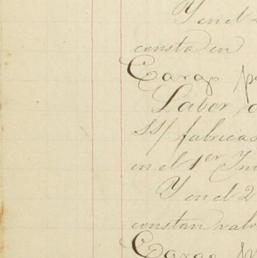 Y en el
consta en
Cargo
Labor
SS/ fabricas
en el 1er
Y en el 2
constan
Cargo